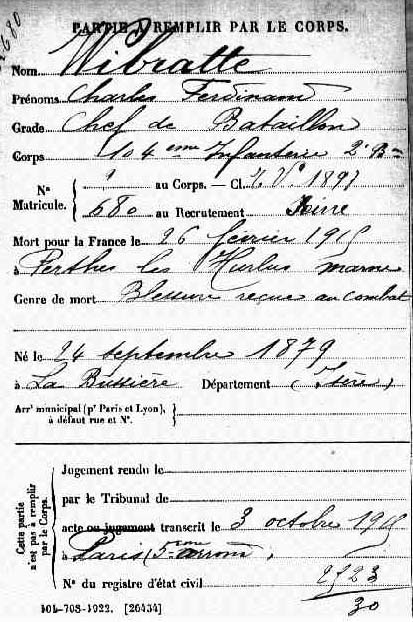 680
PARTIE À REMPLIR PAR LE CORPS.
Nom Wibratte
Prénoms Charles Ferdinand
Grade Chef de Bataillon
Corps 104 eme Infanterie 2e Bon
Nº Matricule. { au Corps. — Cl. E. Vº 1897
680 au Recrutement
Mort pour la France le 26 février 1915
à Perthes les Hurlus marne
Genre de mort Blessure reçue au combat
Né le 24 septembre 1879
à La Bussière Département (Isère)
Arrt municipal (pr Paris et Lyon), à défaut rue et Nº. }
Cette partie n'est pas à remplir par le Corps.
Jugement rendu le
par le Tribunal de
acte ou jugement transcrit le 3 octobre 1915
à Paris (5eme arrond)
Nº du registre d'état civil
30
101-708-1922. [26434]